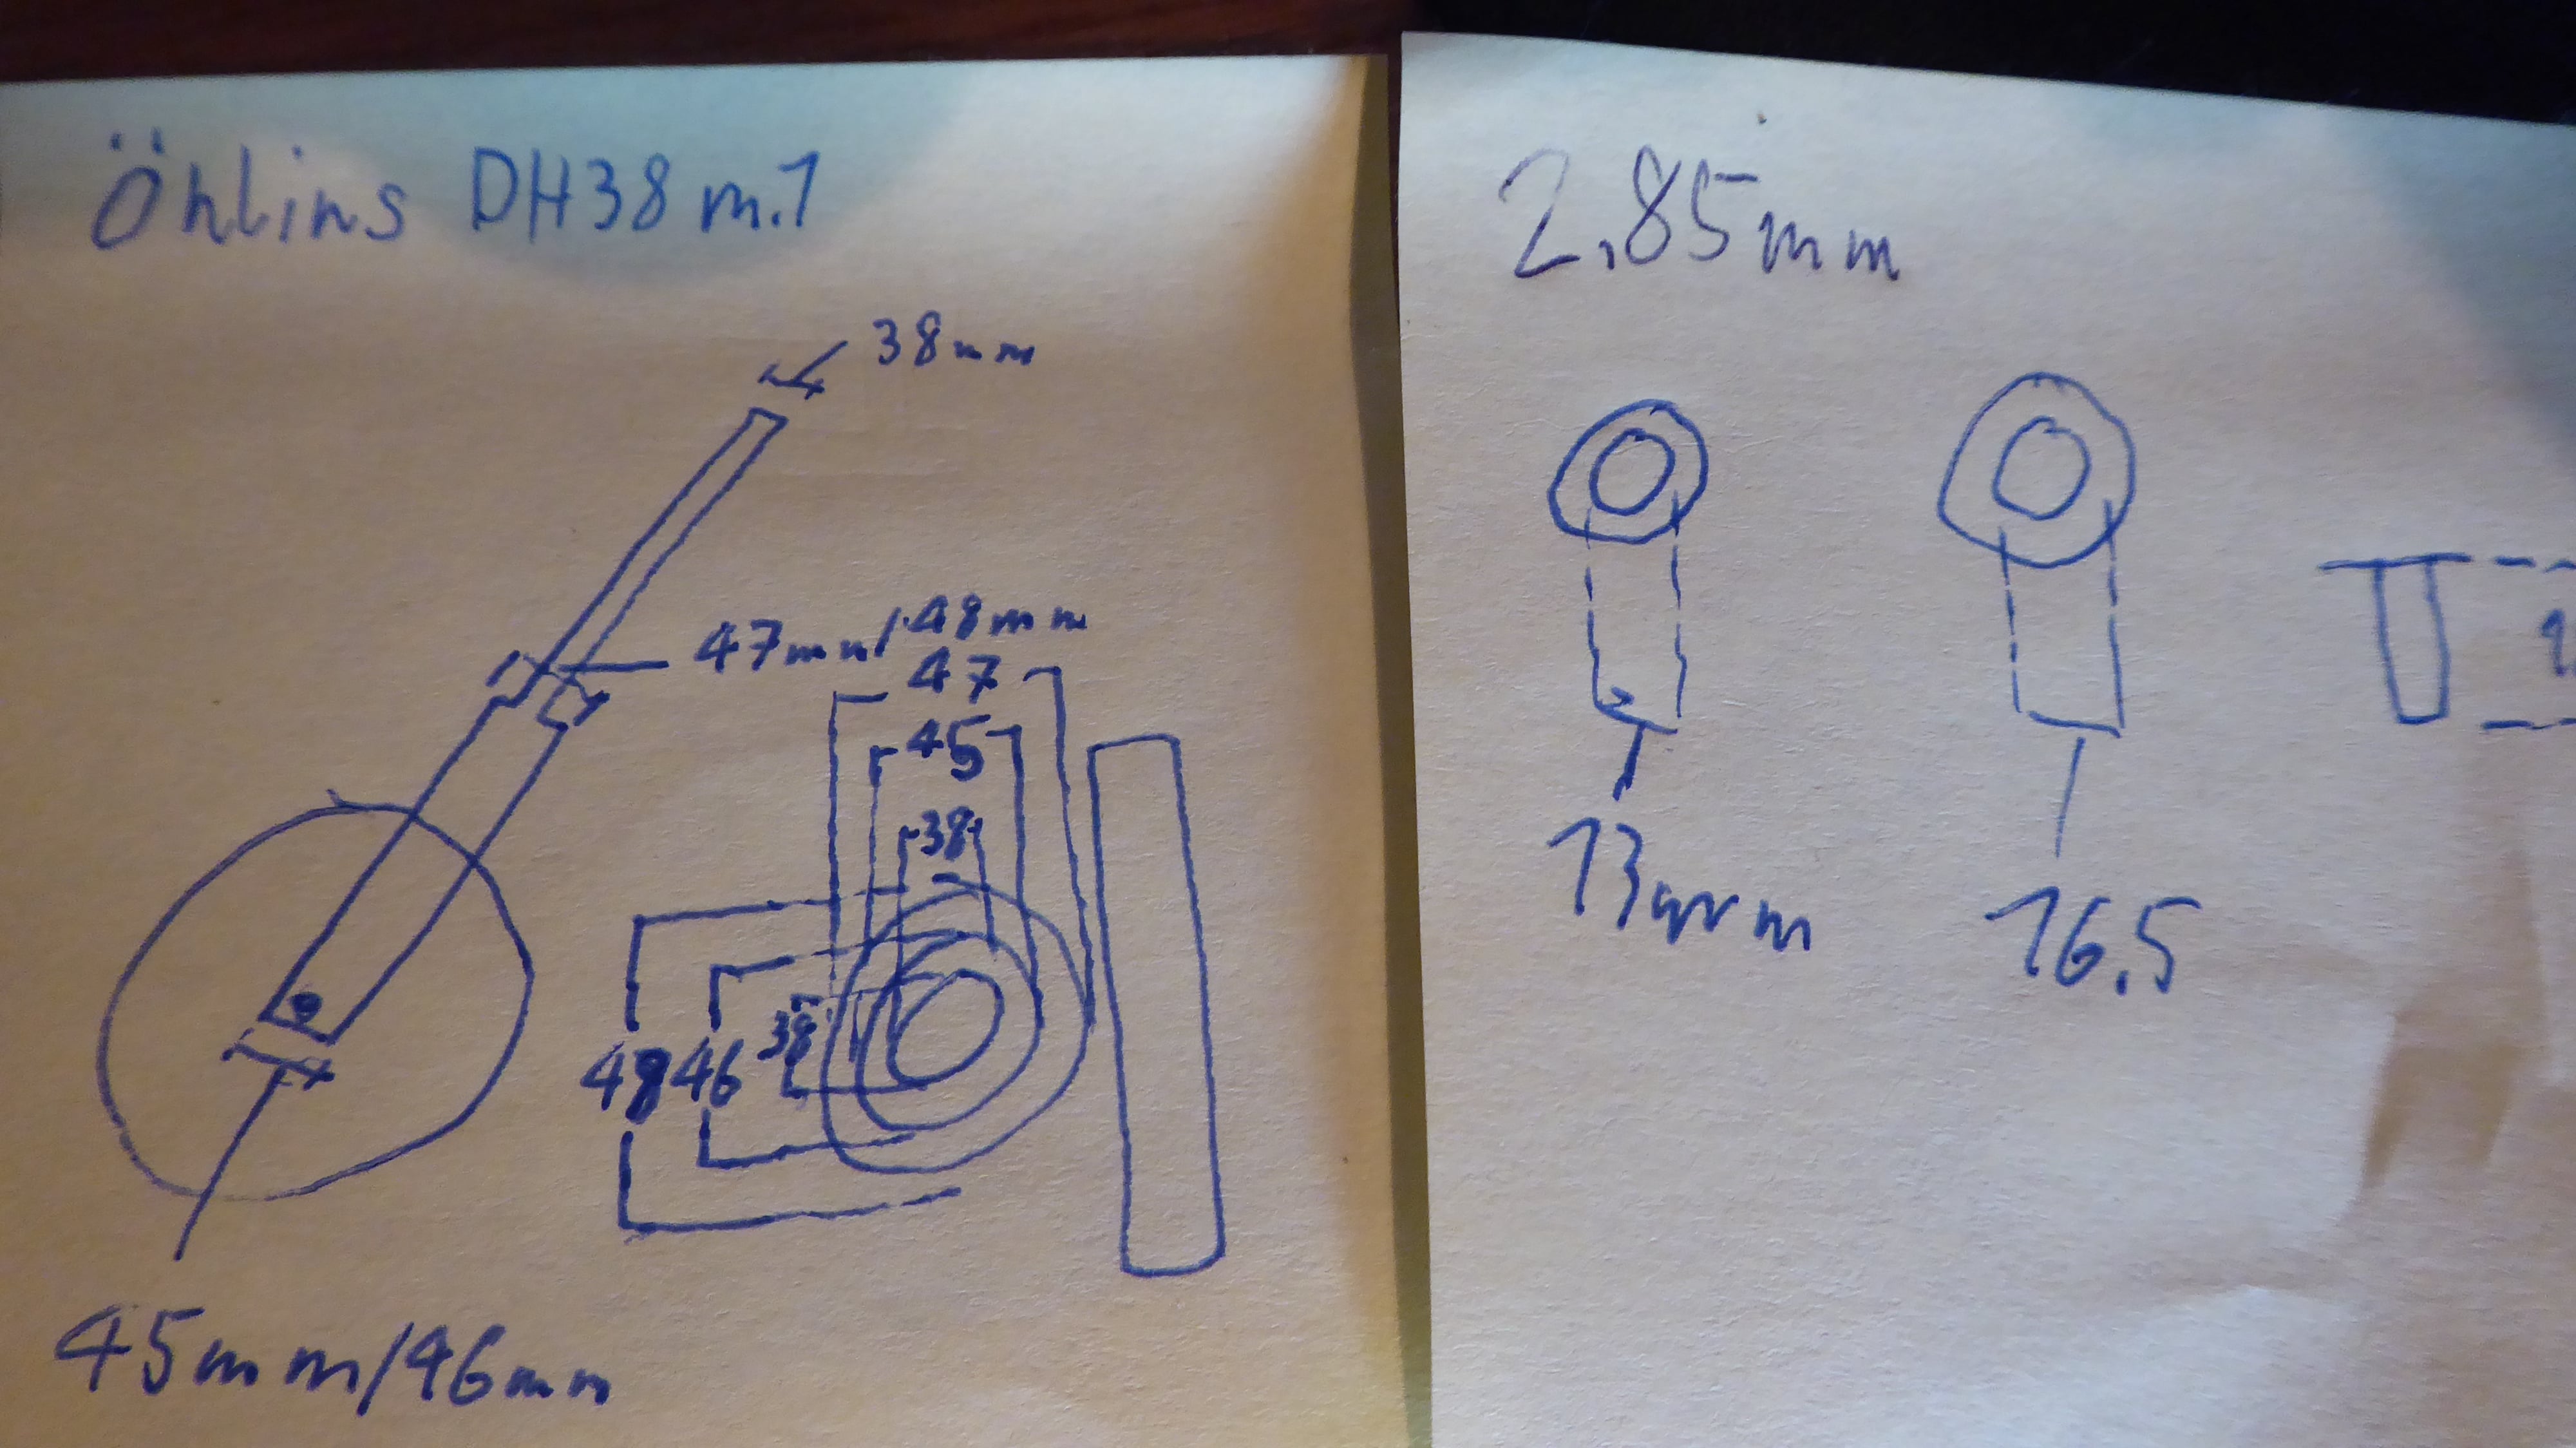 Öhlins DH38 m.1
38mm
47mm/48mm
47
45
38
38
48 46
45mm/46mm
2.85mm
13mm
16.5